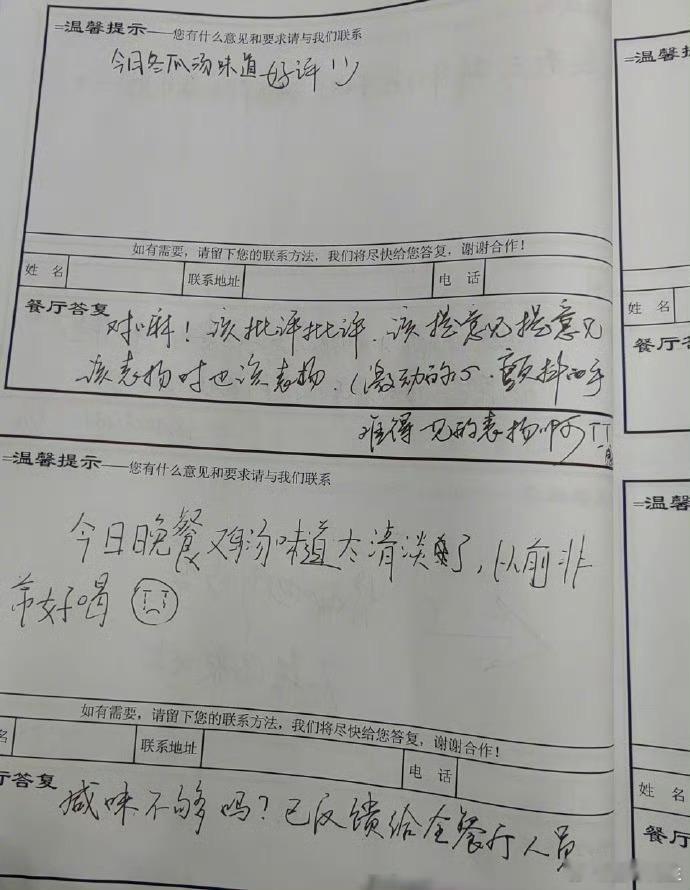 =温馨提示——您有什么意见和要求请与我们联系
今日冬瓜汤味道好评!!)
如有需要，请留下您的联系方法，我们将尽快给您答复，谢谢合作！
姓 名 联系地址 电 话
餐厅答复
对嘛！该批评批评．该提意见提意见
该表扬时也该表扬．(激动的心．颤抖的手
难得见的表扬啊TT
=温馨提示——您有什么意见和要求请与我们联系
今日晚餐鸡汤味道太清淡了，以前非
常好喝
如有需要，请留下您的联系方法，我们将尽快给您答复，谢谢合作！
名 联系地址 电 话
厅答复
咸味不够吗？已反馈给全餐厅人员
=温馨提
姓 名
餐厅答
=温馨提示
姓 名
餐厅